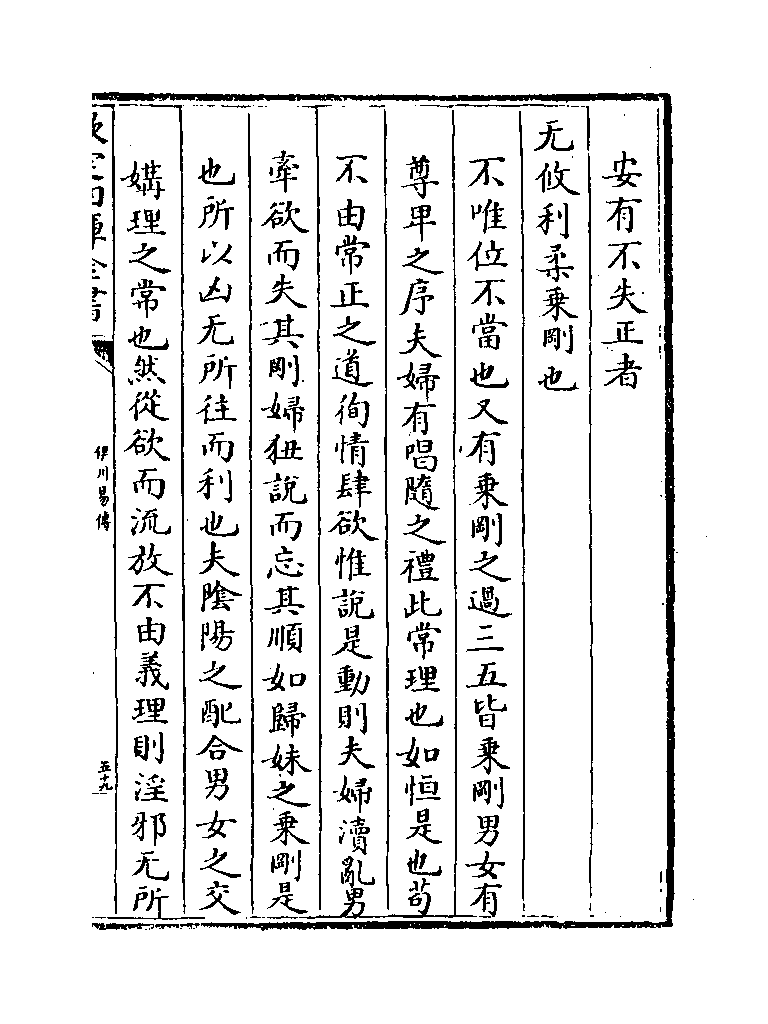 安有不失正者
无攸利柔乗剛也
不唯位不當也又有乗剛之過三五皆乗剛男女有
尊卑之序夫婦有唱隨之禮此常理也如恒是也苟
不由常正之道徇情肆欲惟說是動則夫婦瀆亂男
牽欲而失其剛婦狃說而忘其順如歸妹之乗剛是
也所以凶无所往而利也夫陰陽之配合男女之交
媾理之常也然從欲而流放不由義理則淫邪无所
欽定四庫全書
伊川易傳
五十九